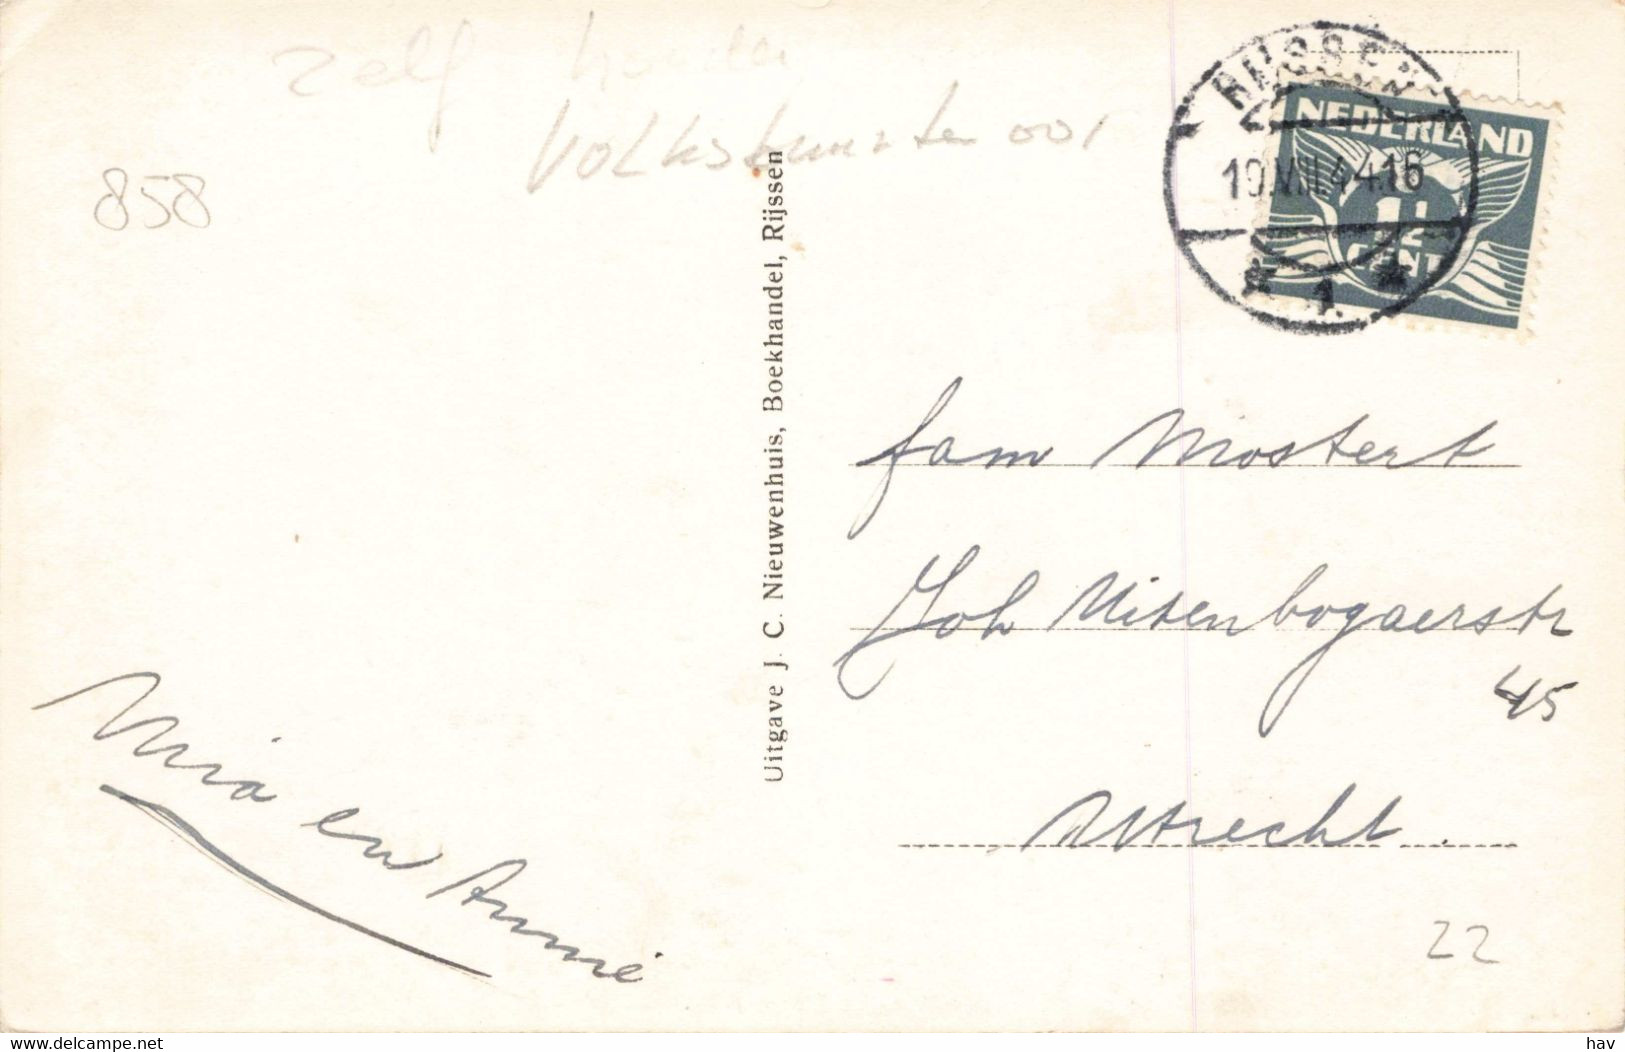 zelf
858
RIJSSEN
NEDERLAND
10.VIII.44.16
1½
CENT
1.
Uitgave J. C. Nieuwenhuis, Boekhandel, Rijssen
fam Mostert
Joh Uitenbogaerstr
45
Utrecht.
Mia en Annie
22
www.delcampe.net
hav